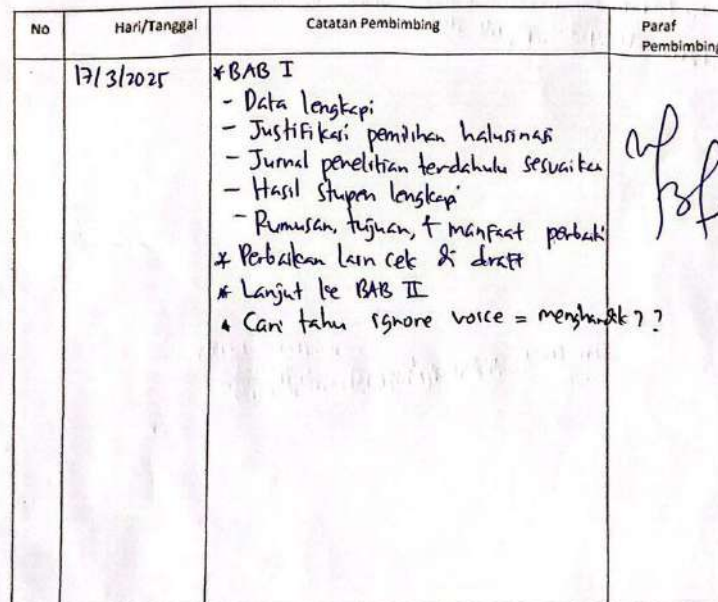 No Hari/Tanggal Catatan Pembimbing Paraf
Pembimbing
17/3/2025 * BAB I
- Data lengkapi
- Justifikasi pemilihan halusinasi
- Jurnal penelitian terdahulu sesuaikan
- Hasil stupen lengkapi
- Rumusan, tujuan, + manfaat perbaiki
* Perbaikan lain cek di draft
* Lanjut ke BAB II
* Cari tahu ignore voice = menghardik ??